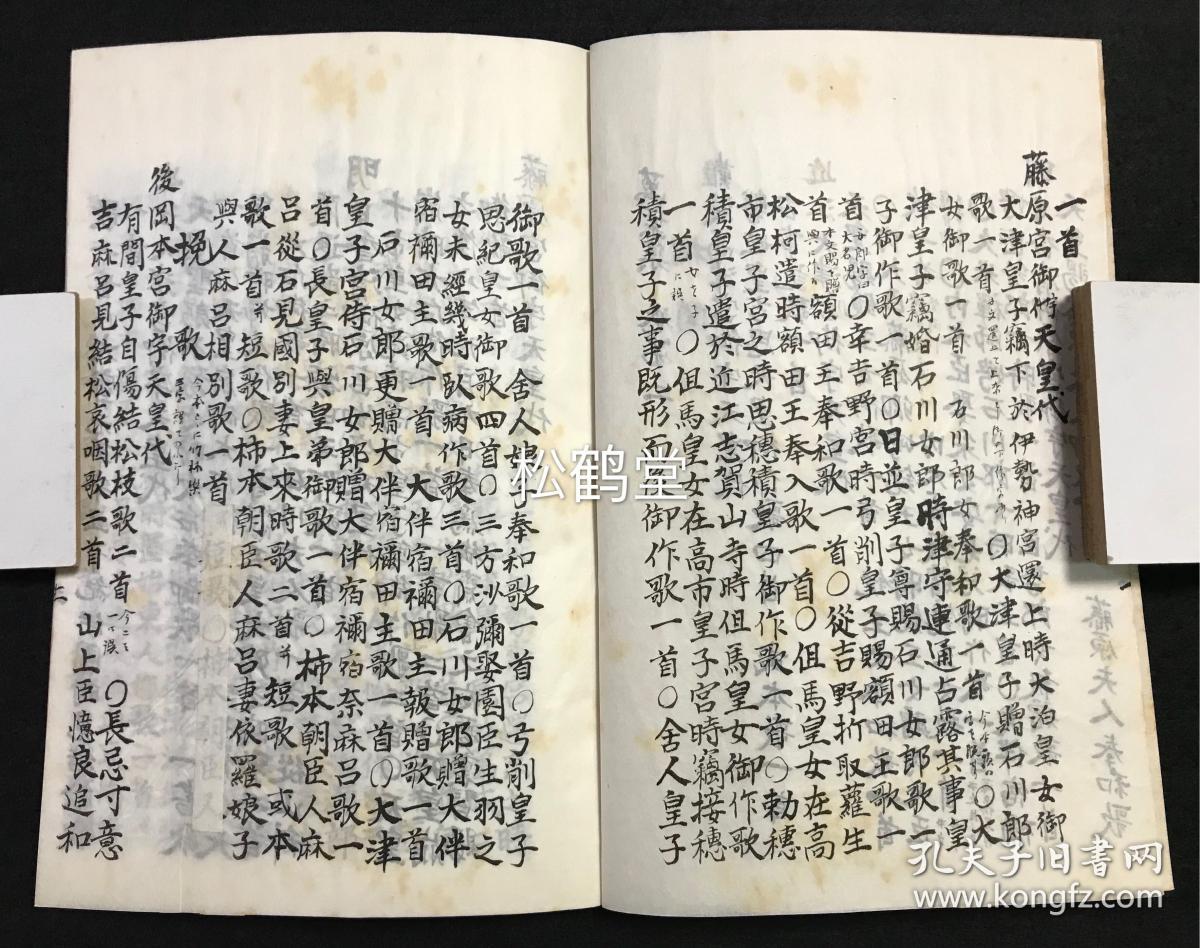 一首
藤原宮御宇天皇代
大津皇子竊下於伊勢神宮還上時大泊皇女御
歌一首 〇大津皇子贈石川郎
女御歌一首 石川郎女奉和歌一首 〇大
津皇子竊婚石川女郎時津守連通占露其事皇
子御作歌一首〇日並皇子尊賜石川女郎歌一
首 〇幸吉野宮時弓削皇子賜額田王歌一
首 額田王奉和歌一首〇從吉野折取蘿生
松柯遣時額田王奉入歌一首〇但馬皇女在高
市皇子宮之時思穗積皇子御作歌一首〇勅穗
積皇子遣於近江志賀山寺時但馬皇女御作歌
一首 〇但馬皇女在高市皇子宮時竊接穗
積皇子之事既形而後御作歌一首〇舍人皇子
御歌一首 舍人娘子奉和歌一首〇弓削皇子
思紀皇女御歌四首〇三方沙彌娶園臣生羽之
女未經幾時臥病作歌三首〇石川女郎贈大伴
宿禰田主歌一首 大伴宿禰田主報贈歌一首
石川女郎更贈大伴宿禰田主歌一首〇大津
皇子宮侍石川女郎贈大伴宿禰宿奈麻呂歌一
首〇長皇子與皇弟御歌一首〇柿本朝臣人麻
呂從石見國別妻上來時歌二首并短歌 或本
歌一首并短歌〇柿本朝臣人麻呂妻依羅娘子
與人麻呂相別歌一首
挽歌
後岡本宮御宇天皇代
有間皇子自傷結松枝歌二首 〇長忌寸意
吉麻呂見結松哀咽歌二首 山上臣憶良追和
松鹤堂
孔夫子旧书网
www.kongfz.com